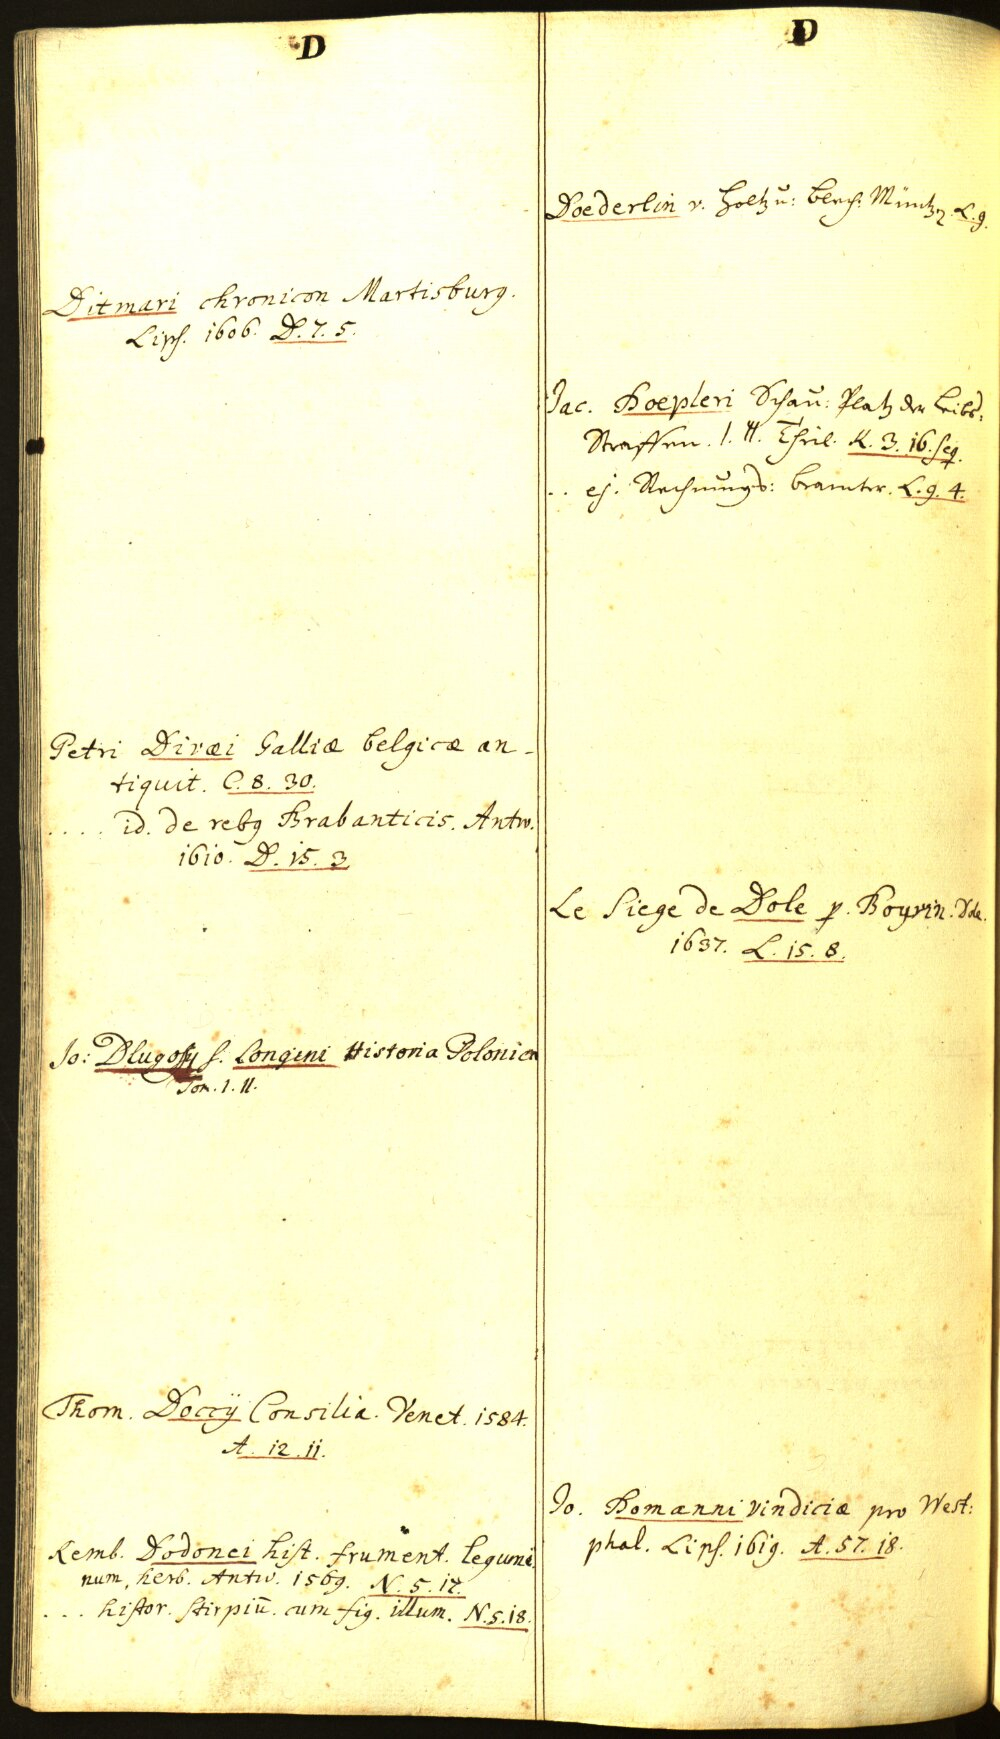 D
Ditmari chronicon Martisburg.
Lips. 1606. D. 7. 5.
Petri Divæi Galliæ belgicæ an-
tiquit. C. 8. 30.
.... id. de rebq Brabanticis. Antw.
1610. D. 15. 3
Jo: Dlugossy s. Longini Historia Polonica
Tom. I. II.
Thom. Doccÿ Consilia. Venet. 1584.
A. 12. 11.
Remb. Dodonei hist. frument. legumi
num, herb. Antw. 1569. N. 5. 17.
... histor. stirpiū. cum fig. illum. N. 5. 18.
D
Doederlin v. Holtz u: blech. Müntz. L. 9.
Jac. Doepleri Schau: Platz der Leibs:
Straffen. I. II. Theil. K. 3. 16. seq.
.. ej. Rechnungs: beamter. L. 9. 4.
Le Siege de Dole p. Boyvin. Dole.
1637. L. 15. 8.
Jo. Domanni vindiciæ pro West:
phal. Lips. 1619. A. 57. 18.